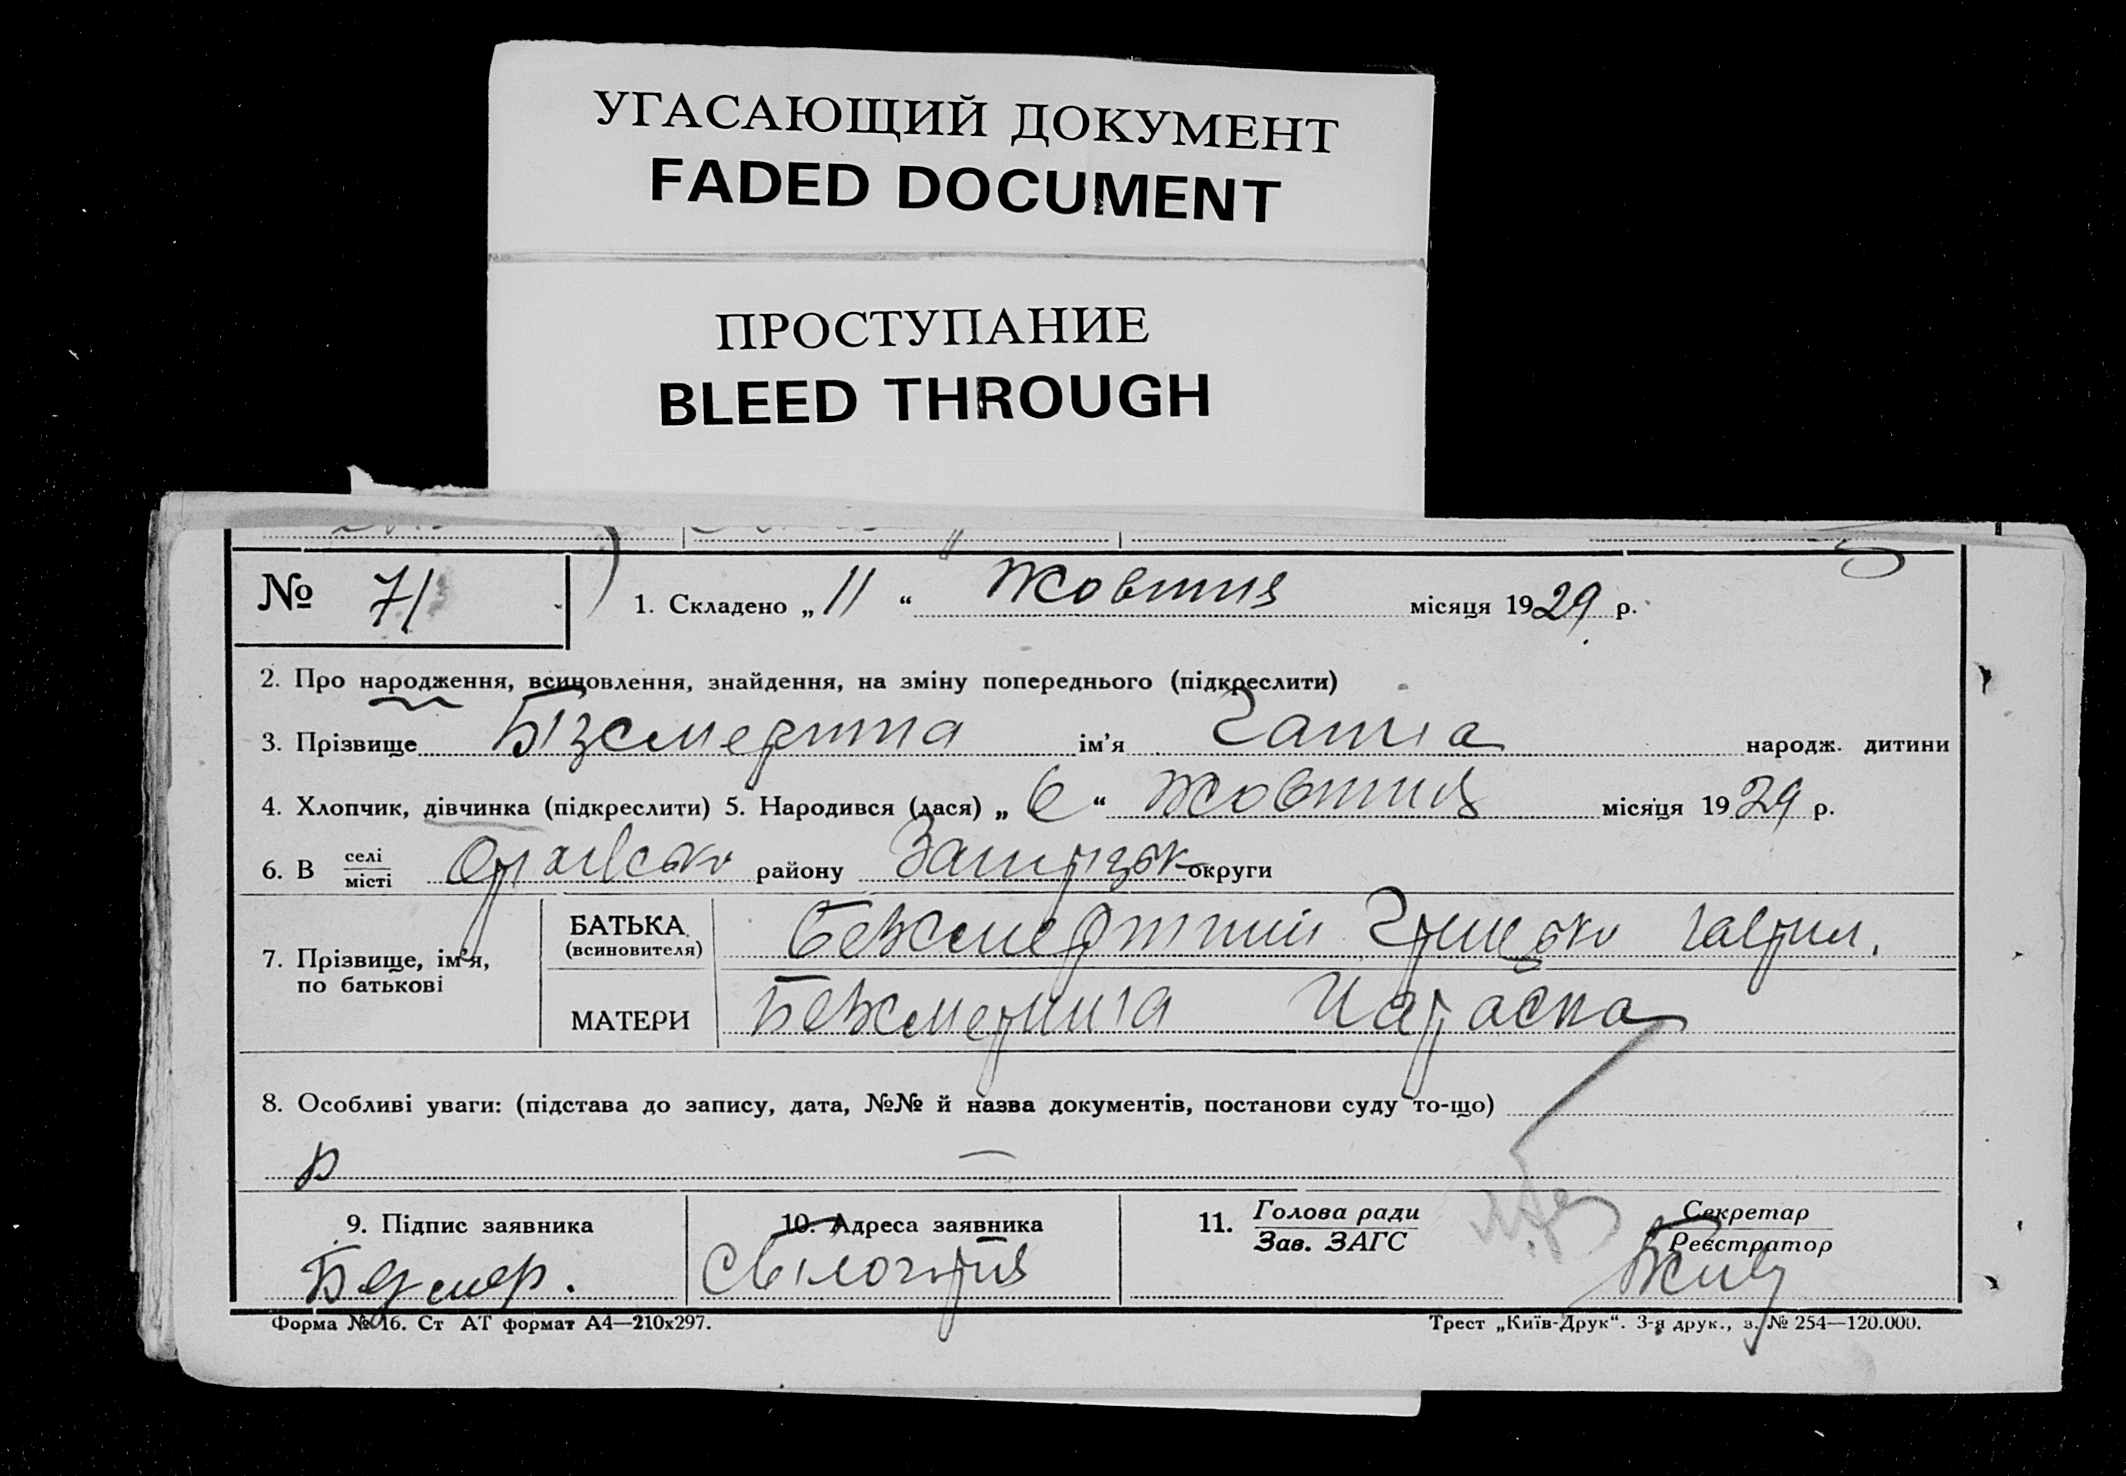 УГАСАЮЩИЙ ДОКУМЕНТ
FADED DOCUMENT
ПРОСТУПАНИЕ
BLEED THROUGH
№ 71 1. Складено „ 11 “ Жовтня місяця 1929 р.
2. Про народження, всиновлення, знайдення, на зміну попереднього (підкреслити)
3. Прізвище Безсмертна ім’я Ганна народж. дитини
4. Хлопчик, дівчинка (підкреслити) 5. Народився (лася) „ 6 “ Жовтня місяця 1929 р.
6. В селі місті району округи
7. Прізвище, ім’я, по батькові
БАТЬКА (всиновителя) Безсмертний Грицько Гаврил.
МАТЕРИ Безсмертна Параска
8. Особливі уваги: (підстава до запису, дата, №№ й назва документів, постанови суду то-що)
—
9. Підпис заявника 10. Адреса заявника 11. Голова ради Секретар
Зав. ЗАГС Реєстратор
Безсмер.
Форма № 16. Ст АТ формат А4—210х297. Трест „Київ-Друк“. 3-я друк., з. № 254—120.000.